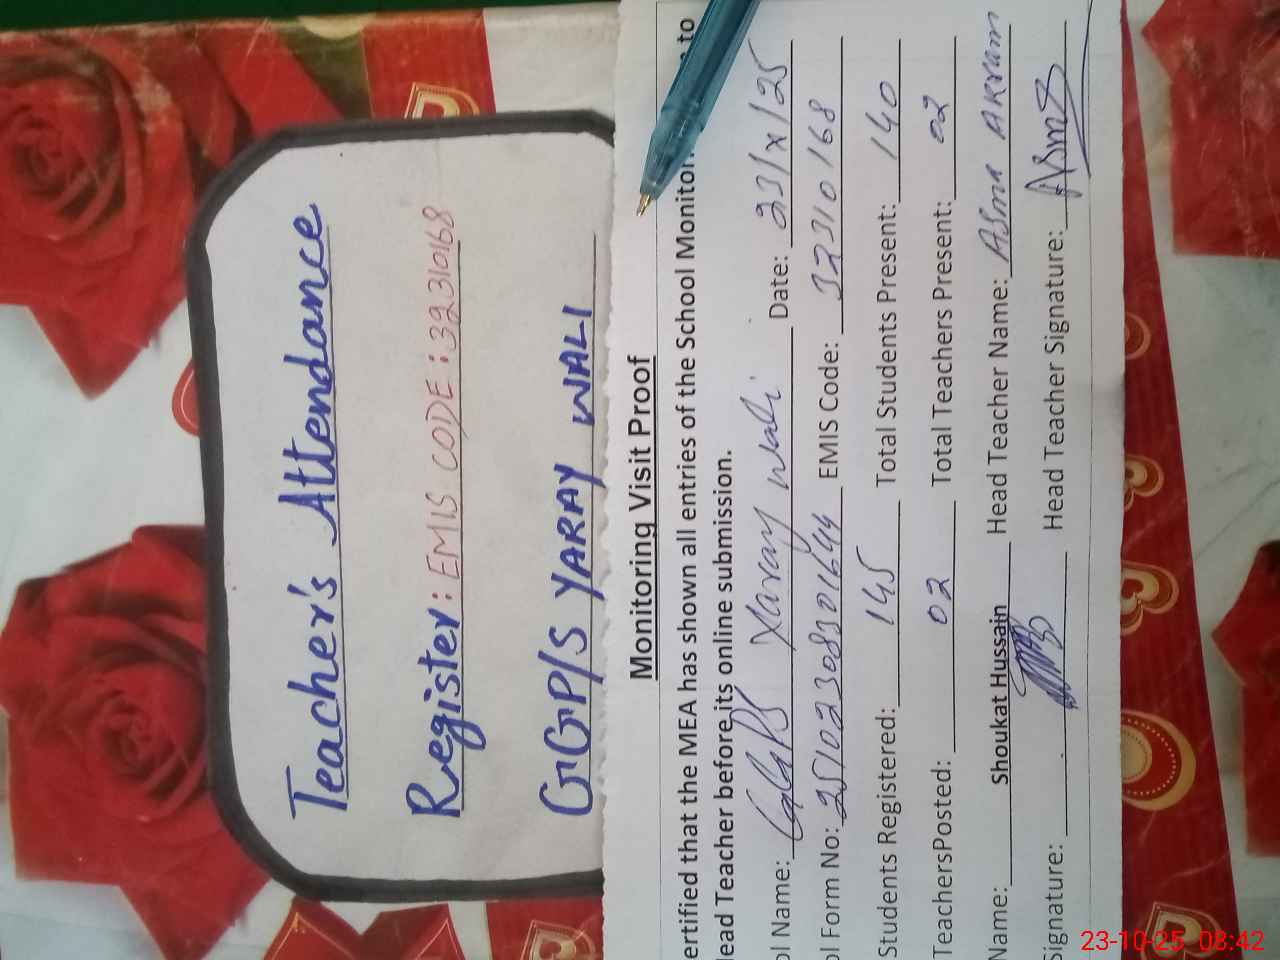 Teacher's Attendance
Register: EMIS CODE: 32310168
GGP/S YARAY WALI
Monitoring Visit Proof
ertified that the MEA has shown all entries of the School Monitor to
lead Teacher before its online submission.
ol Name: GGPS Yaray wali Date: 23/x/25
ol Form No: EMIS Code: 32310168
Students Registered: 145 Total Students Present: 140
TeachersPosted: 02 Total Teachers Present: 02
Name: Shoukat Hussain Head Teacher Name: Asma Akram
Signature: Head Teacher Signature: Asma
23-10-25 08:42